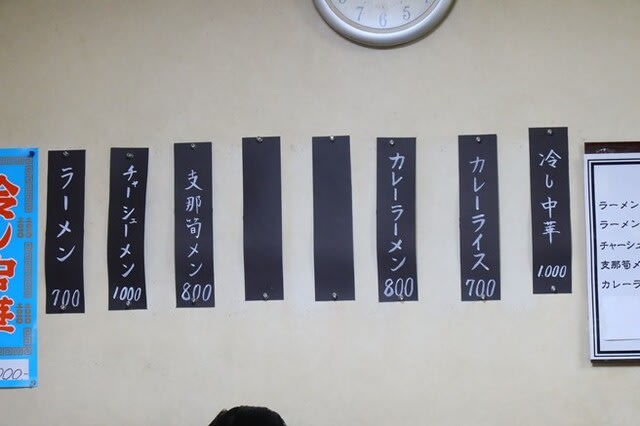 冷し中華
000-
ラーメン
700
チャーシューメン
1000
支那筍メン
800
カレーラーメン
800
カレーライス
700
冷し中華
1.000
ラーメン
ラーメン
チャーシュ
支那筍メ
カレーラ
7 6 5